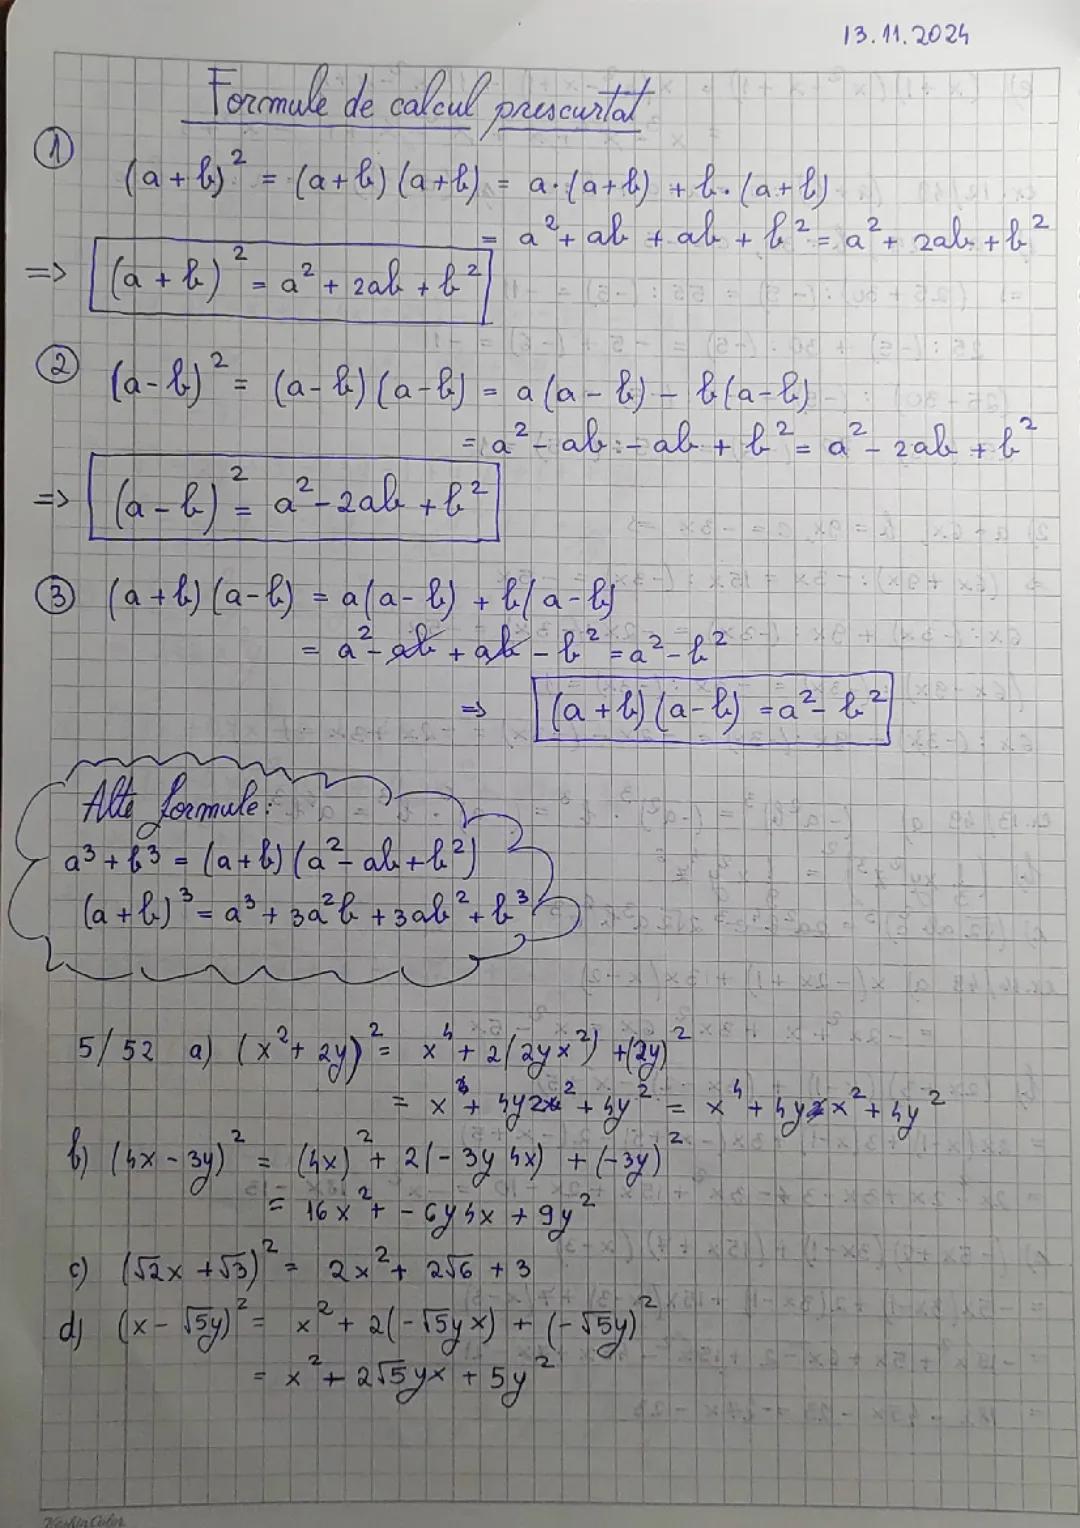 13.11.2024
Formule de calcul prescurtat
① (a+b)² = (a+b)(a+b) = a·(a+b) + b·(a+b)
= a² + ab + ab + b² = a² + 2ab + b²
=> (a+b)² = a² + 2ab + b²
② (a-b)² = (a-b)(a-b) = a(a-b) - b(a-b)
= a² - ab - ab + b² = a² - 2ab + b²
=> (a-b)² = a² - 2ab + b²
③ (a+b)(a-b) = a(a-b) + b(a-b)
= a² - ab + ab - b² = a² - b²
=> (a+b)(a-b) = a² - b²
Alte formule:
a³ + b³ = (a+b)(a² - ab + b²)
(a+b)³ = a³ + 3a²b + 3ab² + b³
5/52 a) (x² + 2y)² = x⁴ + 2(2yx²) + (2y)²
= x⁴ + 4y2x² + 4y² = x⁴ + 4yx² + 4y²
b) (4x - 3y)² = (4x)² + 2(-3y 4x) + (-3y)²
= 16x² + - 6y4x + 9y²
c) (√2x + √3)² = 2x² + 2√6 + 3
d) (x - √5y)² = x² + 2(-√5yx) + (-√5y)²
= x² + 2√5yx + 5y²